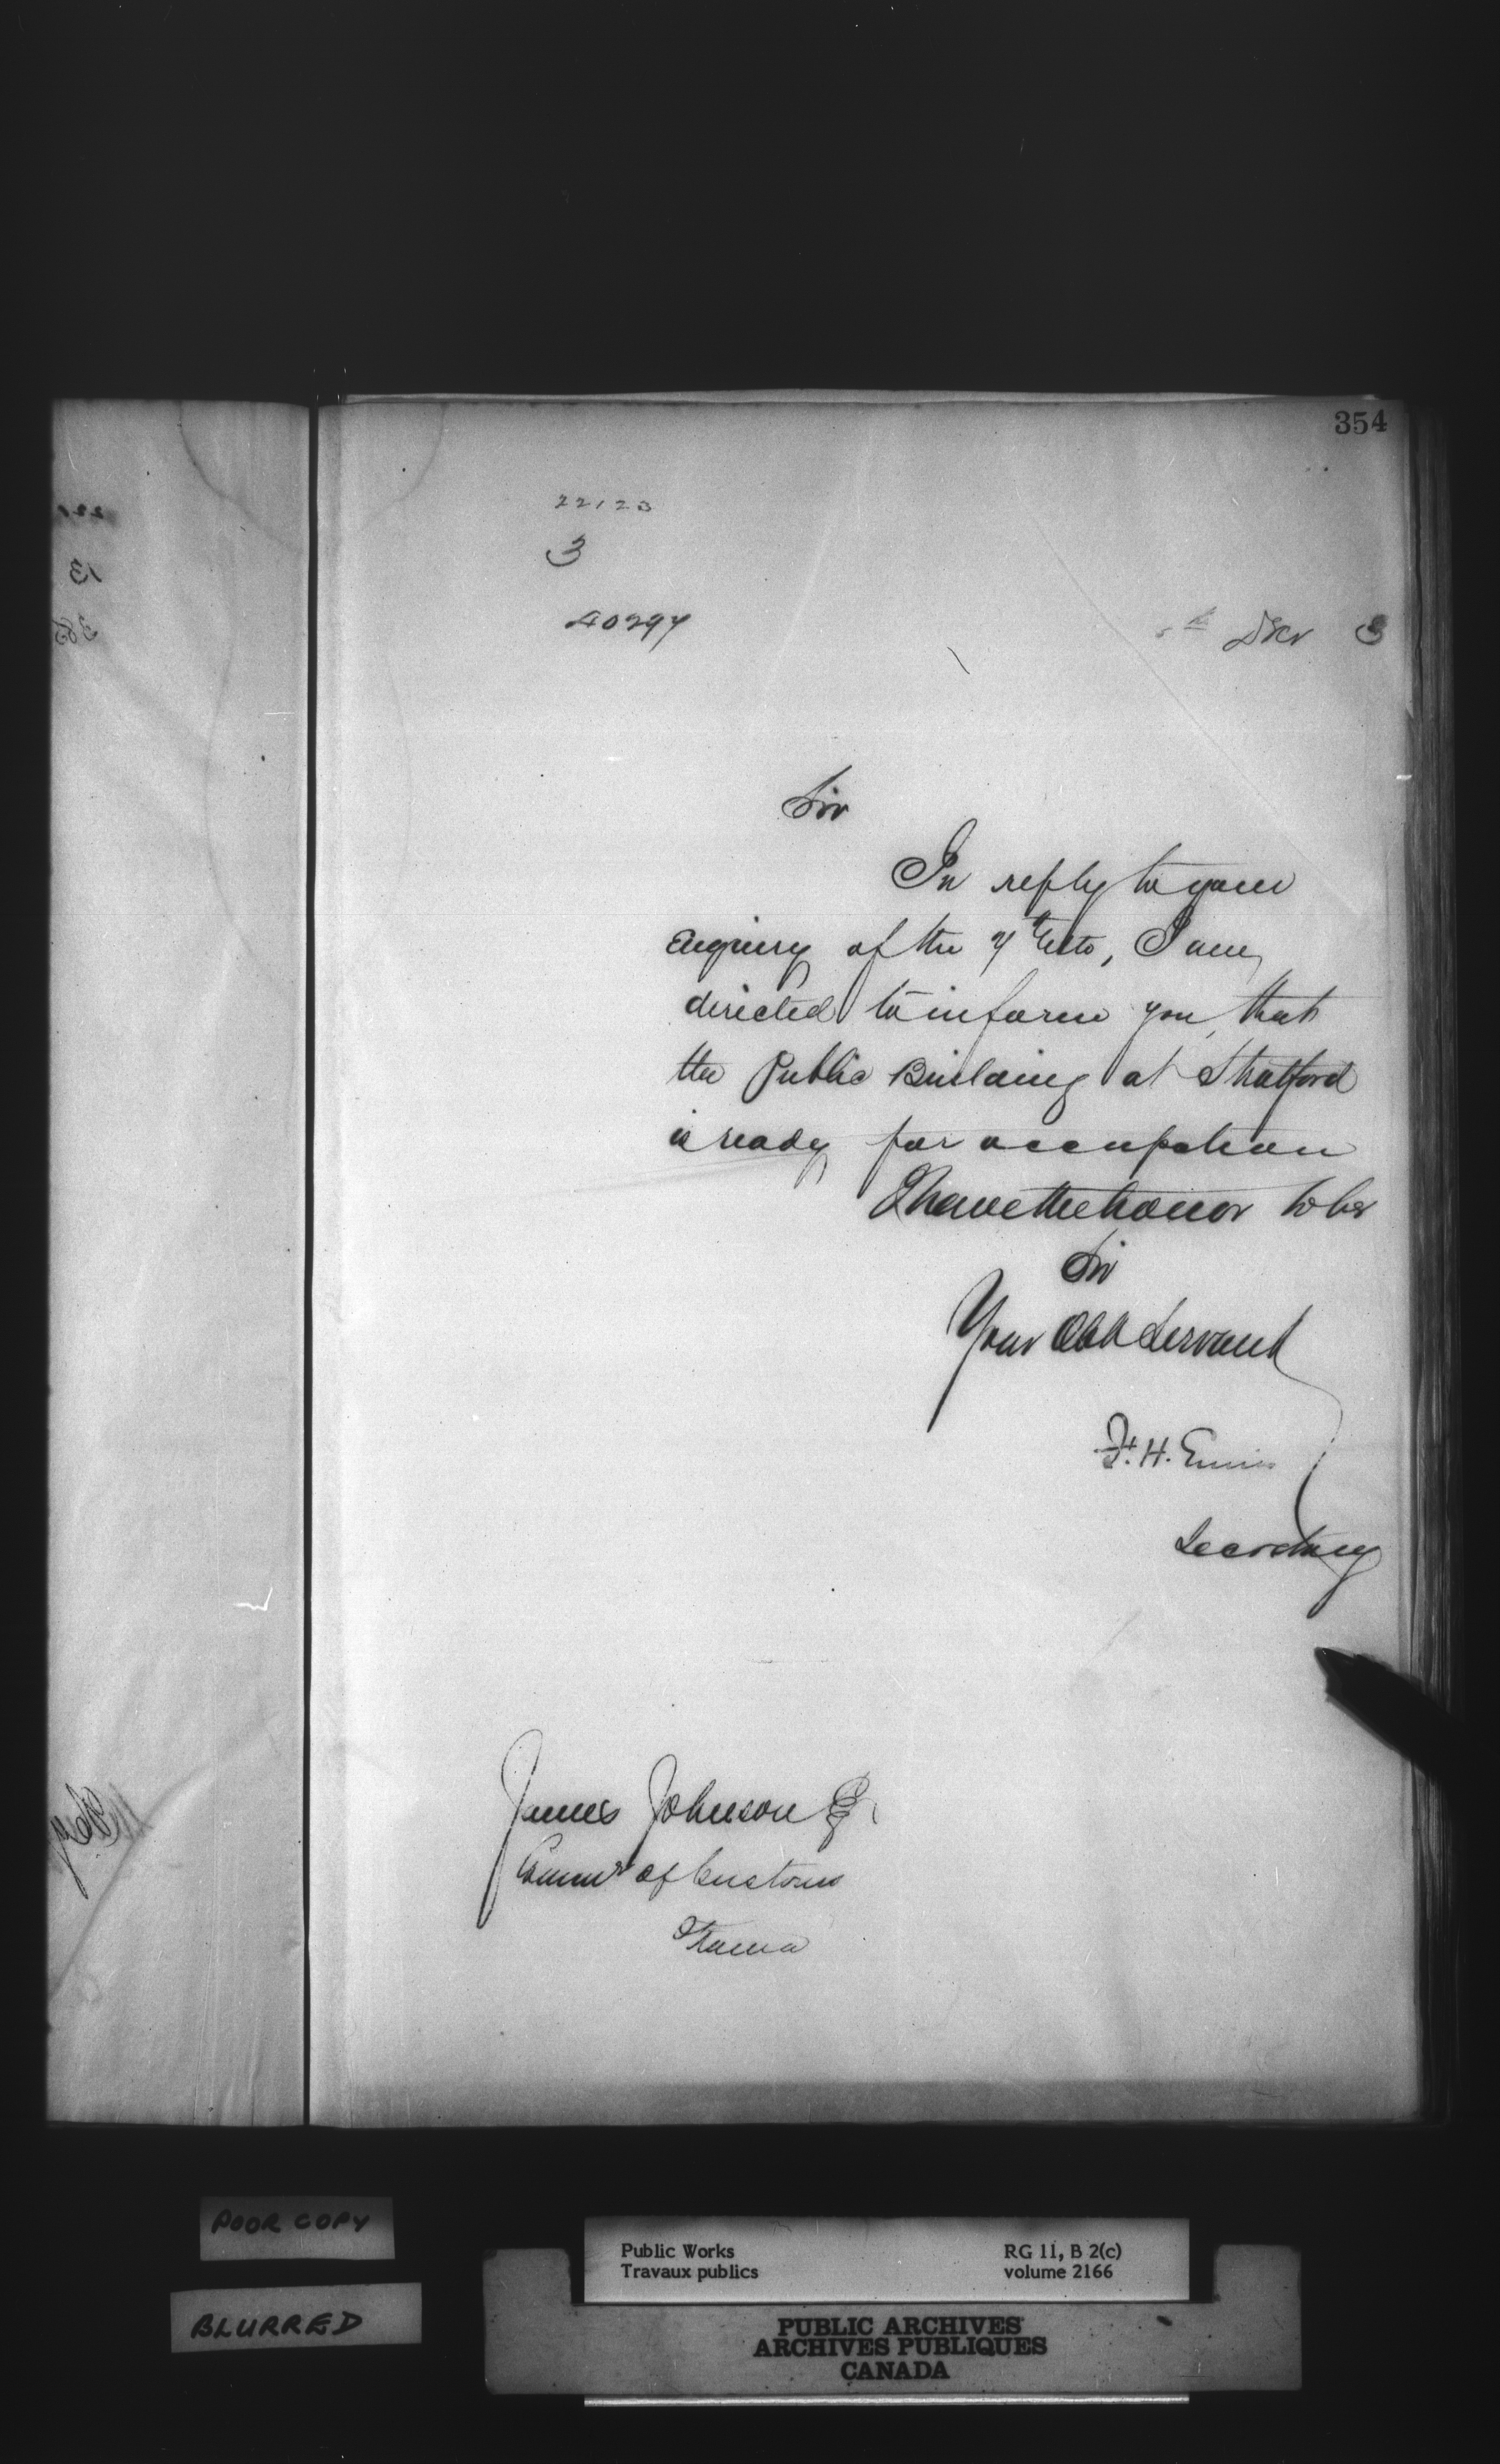 354
22123
3
40297
th Dec 3
Sir
In reply to your
enquiry of the 7th Ulto, I am
directed to inform you, that
the Public Building at Stratford
is ready for occupation
I have the honor to be
Sir
Your Obt Servant
F. H. Ennis
Secretary
James Johnson Esq
Commr of Customs
Ottawa
POOR COPY
BLURRED
Public Works
Travaux publics
RG 11, B 2(c)
volume 2166
PUBLIC ARCHIVES
ARCHIVES PUBLIQUES
CANADA